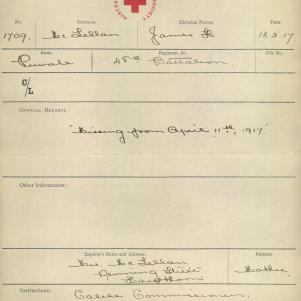 No. Surname. Christian Names.
1709. McLellan James
Rank. Regiment, &c. File No.
Private 48th Battalion
C/L
OFFICIAL REPORTS:
"Missing from April 11th, 1917."
Other Information:
Enquirer's Name and Address. Relation.
Mrs. McLellan Mother
Hawthorn
Instructions: Cable Commissioner,